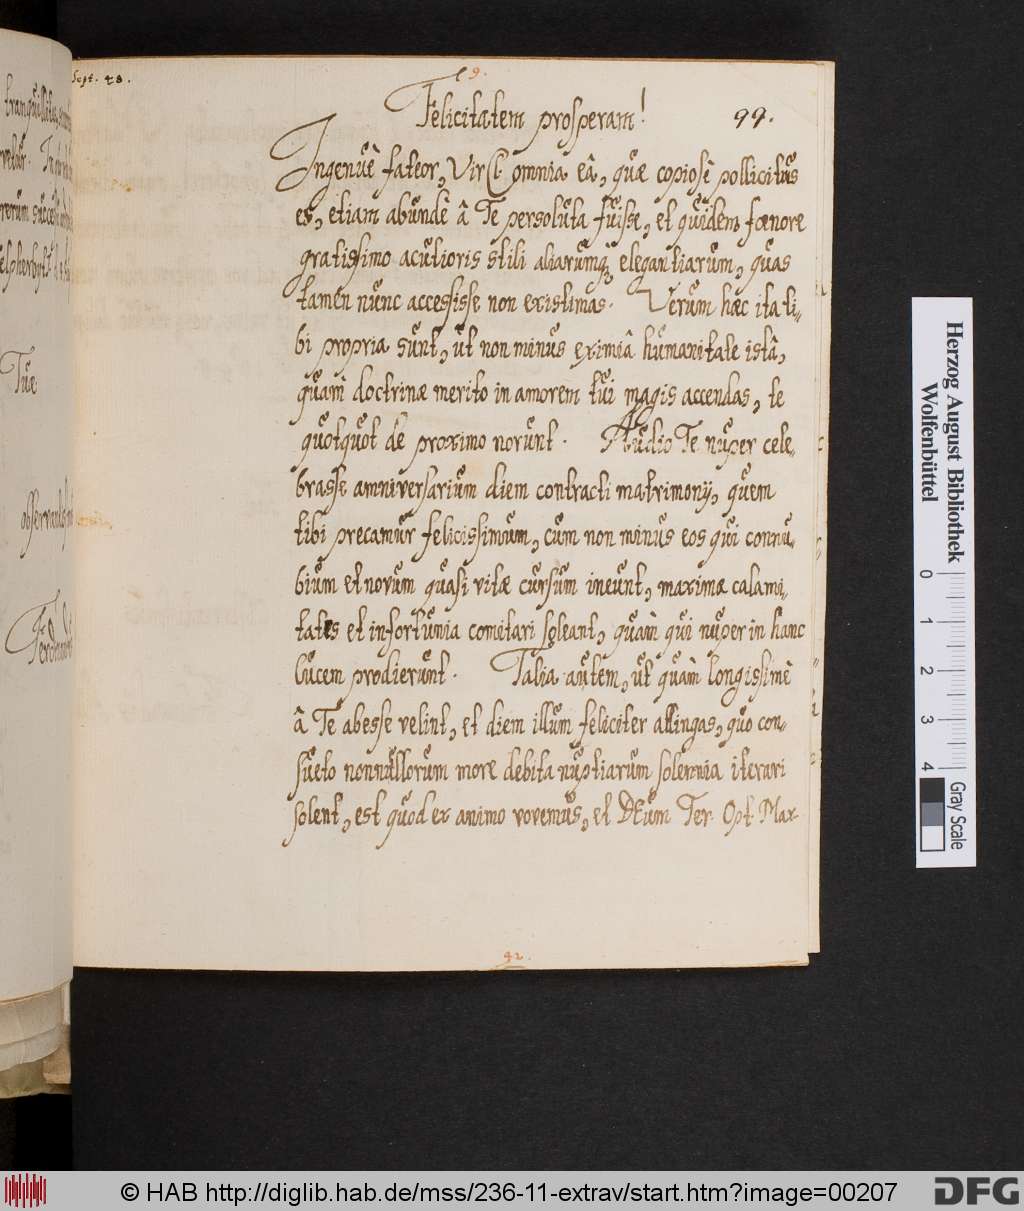 Sept. 48.
19.
Felicitatem prosperam!
99.
Ingenuè fateor, Vir Cl. omnia eâ, quæ copiosè pollicitus
es, etiam abundè â Te persoluta fuisse, et quidem fœnore
gratissimo acutioris stili aliarumq; elegantiarum, quas
tamen nunc accessisse non existimas. Verum hæc ita ti-
bi propria sunt, ut non minus eximiâ humanitate istâ,
quàm doctrinæ merito in amorem tui magis accendas, te
quotquot de proximo norunt. Audio Te nuper cele-
brasse anniversarium diem contracti matrimonij, quem
tibi precamur felicissimum, cum non minus eos qui connu-
bium et novum quasi vitæ cursum ineunt, maximæ calami-
tates et infortunia comitari soleant, quàm qui nuper in hanc
lucem prodierunt. Talia autem, ut quàm longissimè
â Te abesse velint, et diem illum feliciter attingas, quo con-
sueto nonnullorum more debita nuptiarum solemnia iterari
solent, est quod ex animo vovemus, et DEum Ter. Opt. Max.
42.
tranquillitas
Tuæ
Herzog August Bibliothek
Wolfenbüttel
0 1 2 3 4
Gray Scale
© HAB http://diglib.hab.de/mss/236-11-extrav/start.htm?image=00207
DFG